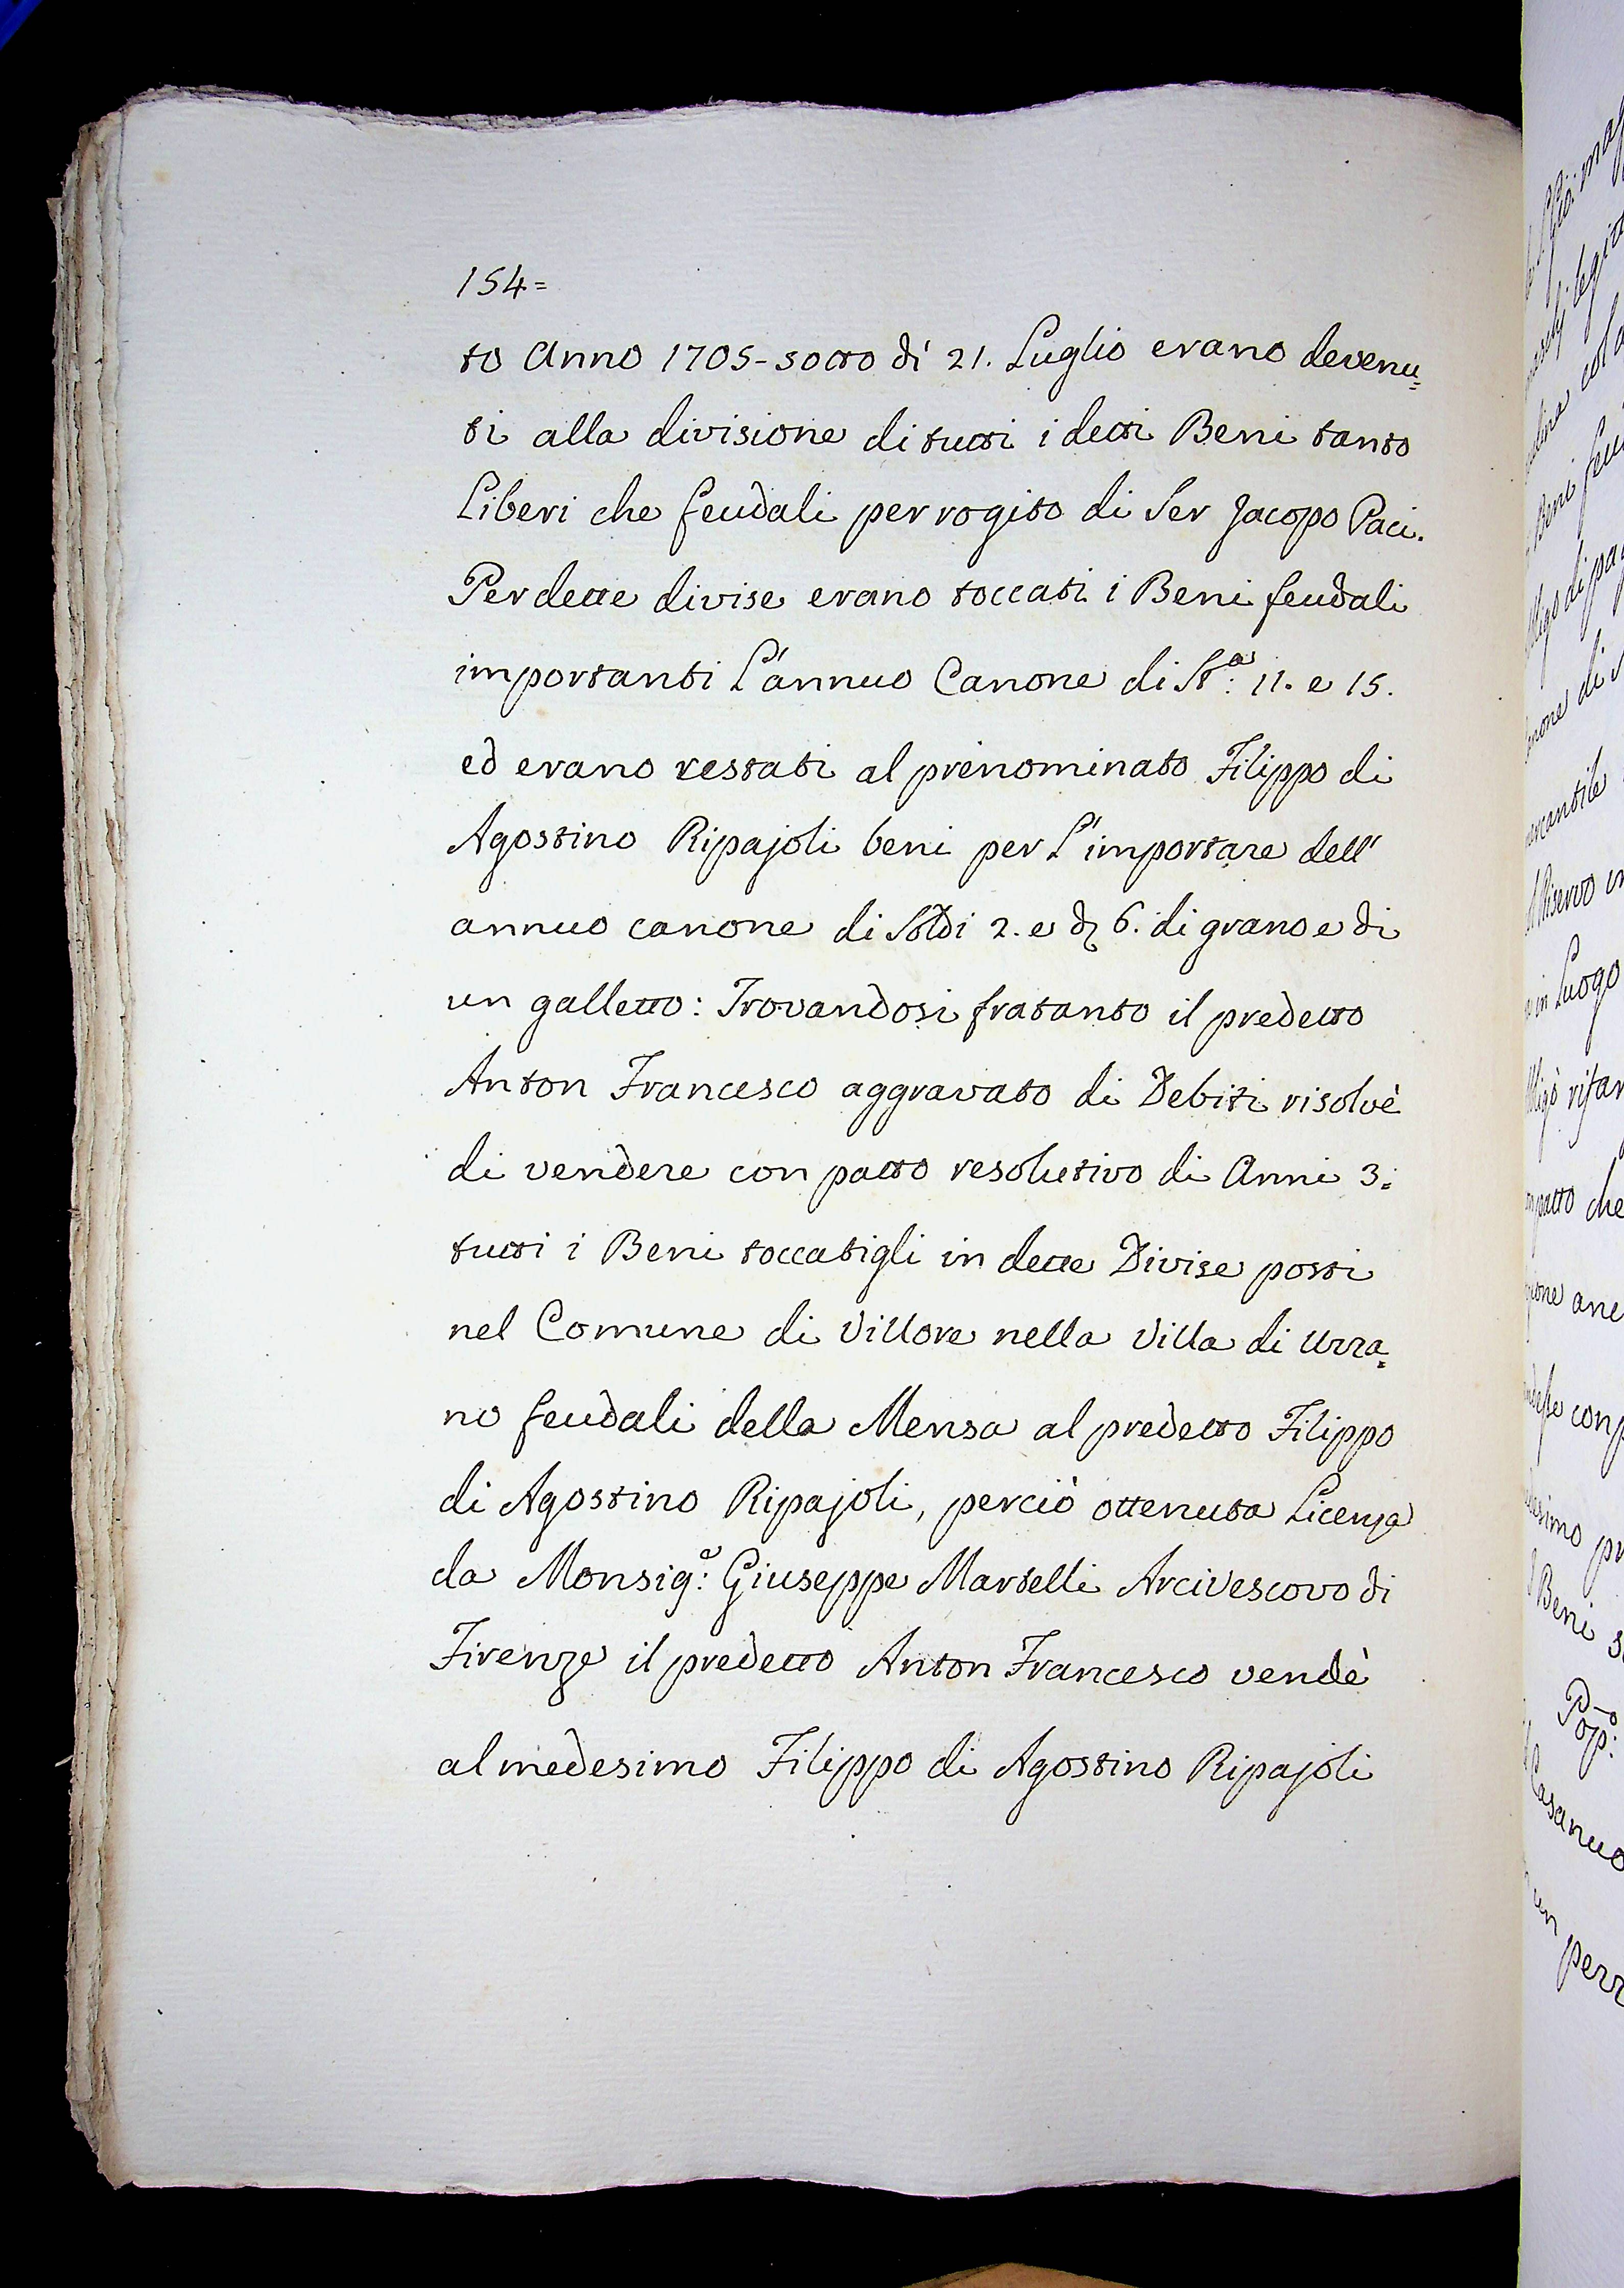 154=
to Anno 1705-sotto dì 21. Luglio erano devenu=
ti alla divisione di tutti i detti Beni tanto
Liberi che feudali per rogito di Ser Jacopo Paci.
Per dette divise erano toccati i Beni feudali
importanti L'annuo Canone di St.ª 11. e 15.
ed erano restati al prenominato Filippo di
Agostino Ripajoli beni per L'importare dell'
annuo canone di Soldi 2. e d 6. di grano e di
un galletto: Trovandosi fratanto il predetto
Anton Francesco aggravato di Debiti risolvè
di vendere con patto resolutivo di Anni 3:
tutti i Beni toccatigli in dette Divise posti
nel Comune di Villore nella Villa di Urra=
no feudali della Mensa al predetto Filippo
di Agostino Ripajoli, perciò ottenuta Licenza
da Monsig.e Giuseppe Martelli Arcivescovo di
Firenze il predetto Anton Francesco vendè
al medesimo Filippo di Agostino Ripajoli